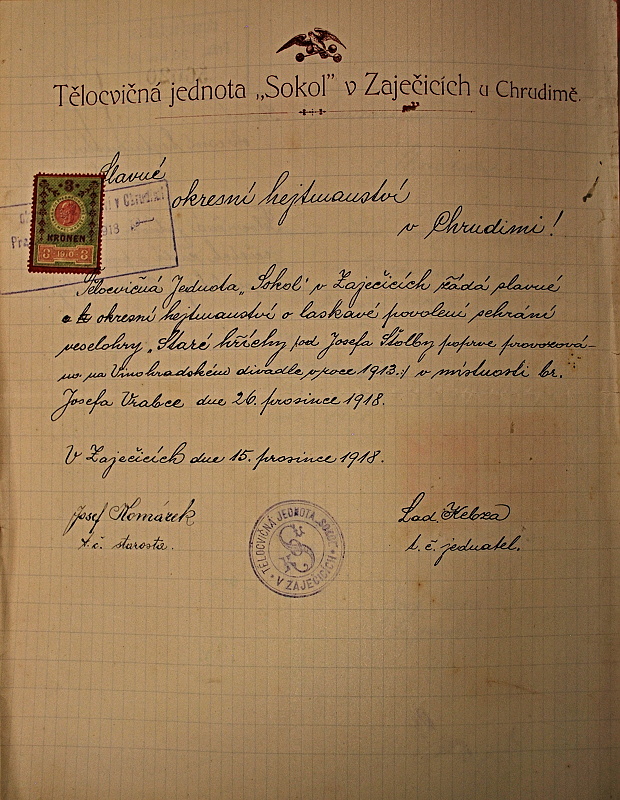 Tělocvičná jednota „Sokol” v Zaječicích u Chrudimě.
Slavné
okresní hejtmanství
v Chrudimi!
v Chrudimi
1918
3
KRONEN
3 1910 3
Tělocvičná Jednota „Sokol" v Zaječicích žádá slavné
okresní hejtmanství o laskavé povolení sehrání
veselohry „Staré hříchy pod Josefa Štolby poprve provozová-
no na Vinohradském divadle v roce 1913.:/ v místnosti br.
Josefa Vrabce dne 26. prosince 1918.
V Zaječicích dne 15. prosince 1918.
Josef Komárek
t. č. starosta.
Lad Kebza
t. č. jednatel.
TĚLOCVIČNÁ JEDNOTA „SOKOL"
V ZAJEČICÍCH